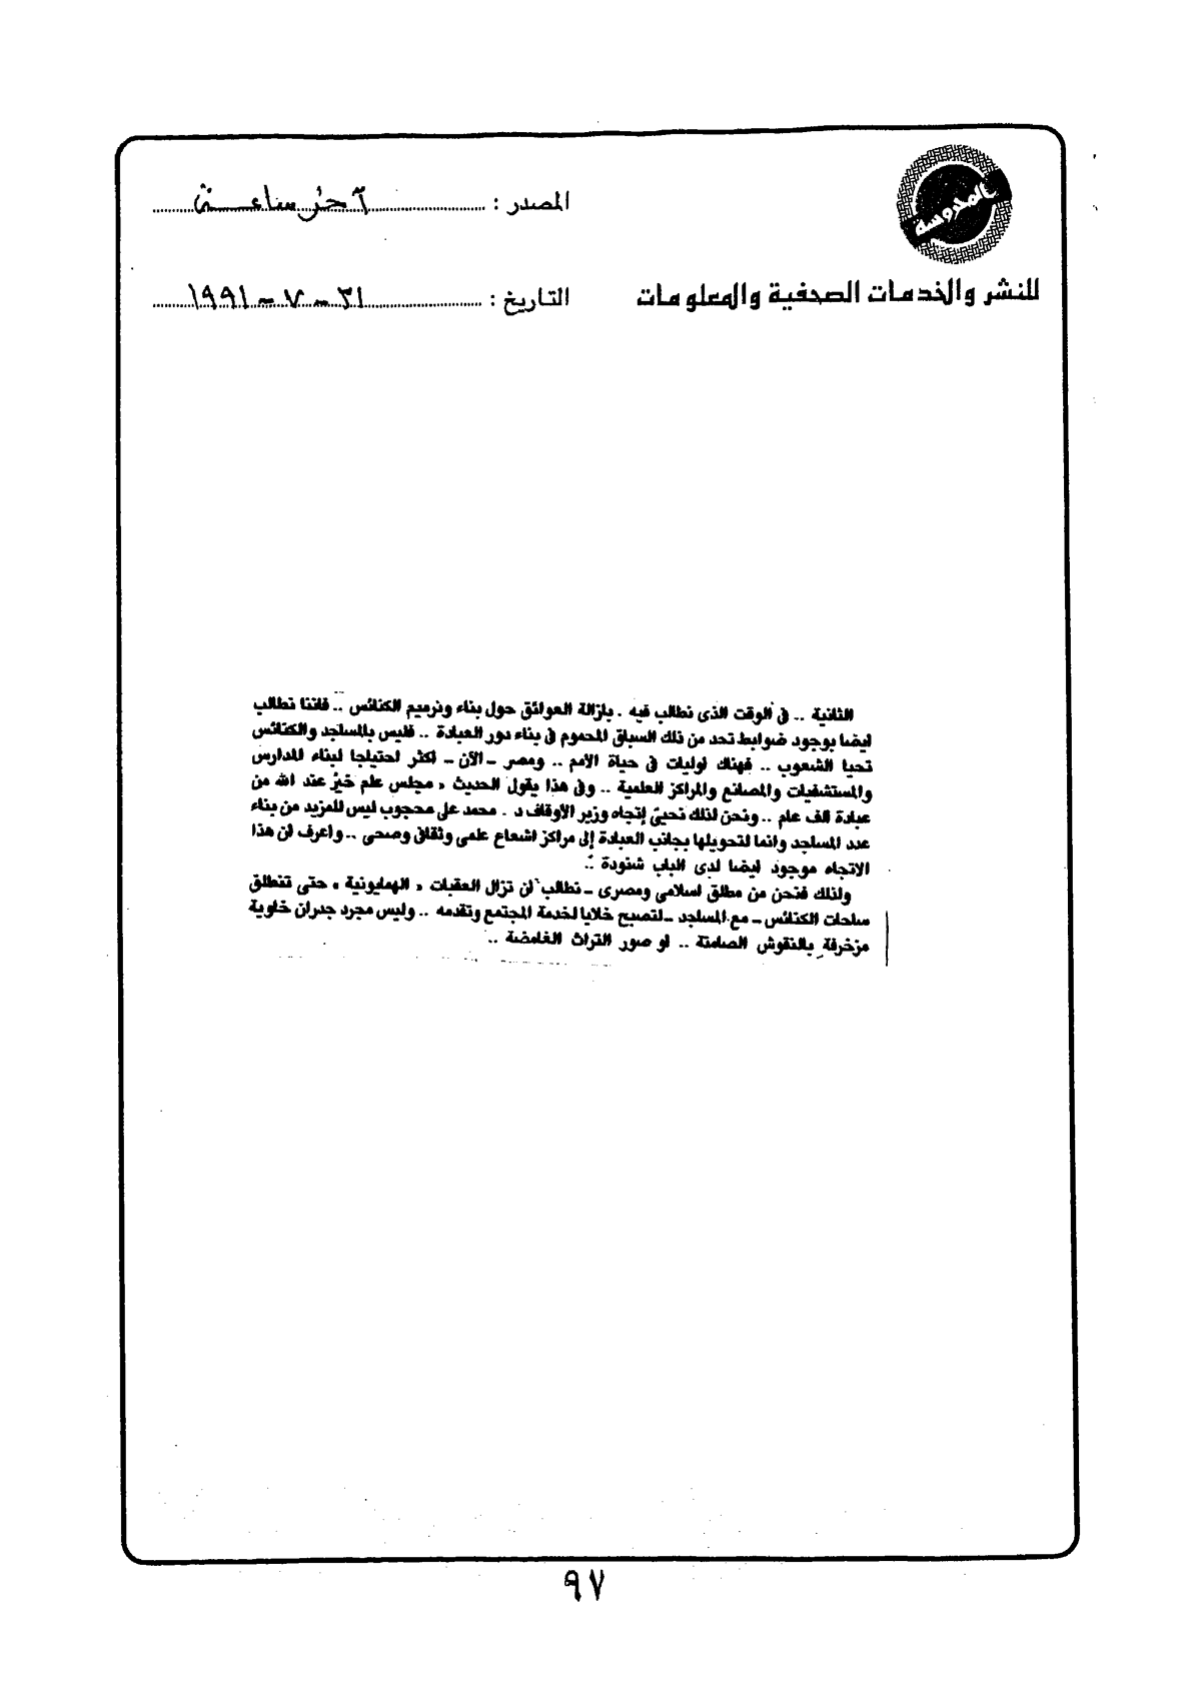 بالمحروسة
للنشر والخدمات الصحفية والمعلومات
المصدر : آخر ساعة
التاريخ : ٣١ - ٧ - ١٩٩١
الثانية .. فى الوقت الذى نطالب فيه . بازالة العوائق حول بناء وترميم الكنائس .. فاننا نطالب
ايضا بوجود ضوابط تحد من ذلك السباق المحموم فى بناء دور العبادة .. فليس بالمساجد والكنائس
تحيا الشعوب .. فهناك اوليات فى حياة الأمم .. ومصر - الآن - اكثر احتياجا لبناء المدارس
والمستشفيات والمصانع والمراكز العلمية .. وفى هذا يقول الحديث « مجلس علم خير عند الله من
عبادة الف عام .. ونحن لذلك نحيى إتجاه وزير الأوقاف د . محمد على محجوب ليس للمزيد من بناء
عدد المساجد وانما لتحويلها بجانب العبادة إلى مراكز اشعاع علمى وثقافى وصحى .. واعرف ان هذا
الاتجاه موجود ايضا لدى الباب شنودة :.
ولذلك فنحن من مطلق اسلامى ومصرى - نطالب ان تزال العقبات « الهمايونية » حتى تنطلق
ساحات الكنائس - مع المساجد - لتصبح خلايا لخدمة المجتمع وتقدمه .. وليس مجرد جدران خاوية
مزخرفة بالنقوش الصامتة .. او صور التراث الغامضة ..
٩٧